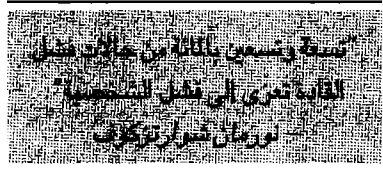 "تسعة وتسعين بالمائة من حالات فشل
القادة تعزى إلى فشل الشخصية"
نورمان شوارتزكوف